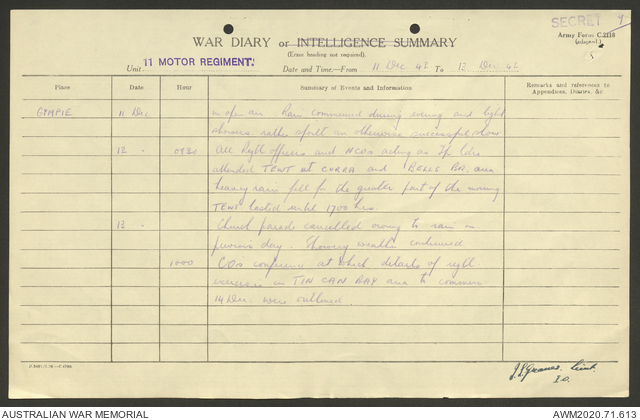 SECRET 9
WAR DIARY or INTELLIGENCE SUMMARY
(Erase heading not required).
Army Form C.2118
(adapted.)
Unit 11 MOTOR REGIMENT. Date and Time:—From 11 Dec 42 To 13 Dec 42
Place Date Hour Summary of Events and Information Remarks and references to
Appendices, Diaries, &c
GYMPIE 11 Dec in open air Rain commenced during evening and light
showers rather spoilt an otherwise successful show
12 0930 All Regtl officers and NCOs acting as Tp ldrs
attended TEWT at CURRA and BELLS area
heavy rain fell for the greater part of the morning
TEWT lasted until 1700 hrs.
13 Church parade cancelled owing to rain on
previous day. Showery weather continued
1000 CO's conference at which details of regtl
exercises in TIN CAN BAY area to commence
14 Dec. were outlined.
Lieut.
I.O.
AUSTRALIAN WAR MEMORIAL
AWM2020.71.613